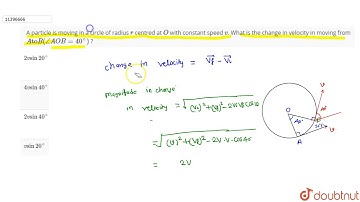 11296666
A particle is moving in a circle of radius r centred at O with constant speed v. What is the change in velocity in moving from
A to B (∠AOB = 40°) ?
2v sin 20°
4v sin 40°
2v sin 40°
v sin 20°
change in velocity = V⃗f - V⃗i
magnitude in change
in velocity = √(Vi)²+(Vf)²-2Vi Vf cos
= √(V)²+(V)²-2V·V·cos40
= 2V
O
40°
A
v
40°
v
doubtnut